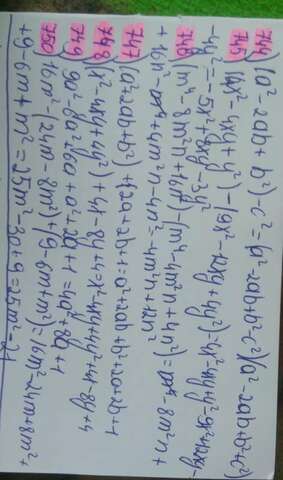 744) (a²-2ab+b²)-c²=(a²-2ab+b²-c²)(a²-2ab+b²+c²)
745) (4x²-4xy+y²)-(9x²-12xy+4y²)=4x²-4xy+y²-9x²+12xy-
-4y²=-5x²+8xy-3y²
746) (m⁴-8m²n+16n²)-(m⁴-4m²n+4n²)=m⁴-8m²n+
+16n²-m⁴+4m²n-4n²=-4m²n+12n²
747) (a²+2ab+b²)+(2a+2b+1=a²+2ab+b²+2a+2b+1
748) (x²-4xy+4y²)+4x-8y+4=x²-4xy+4y²+4x-8y+4
749) 9a²-6a+6a+a²+2a+1=
750) 16m²-(24m-8m²)+(9-6m+m²)=16m²-24m+8m²+
+9-6m+m²=25m²-30+9=25m²-21